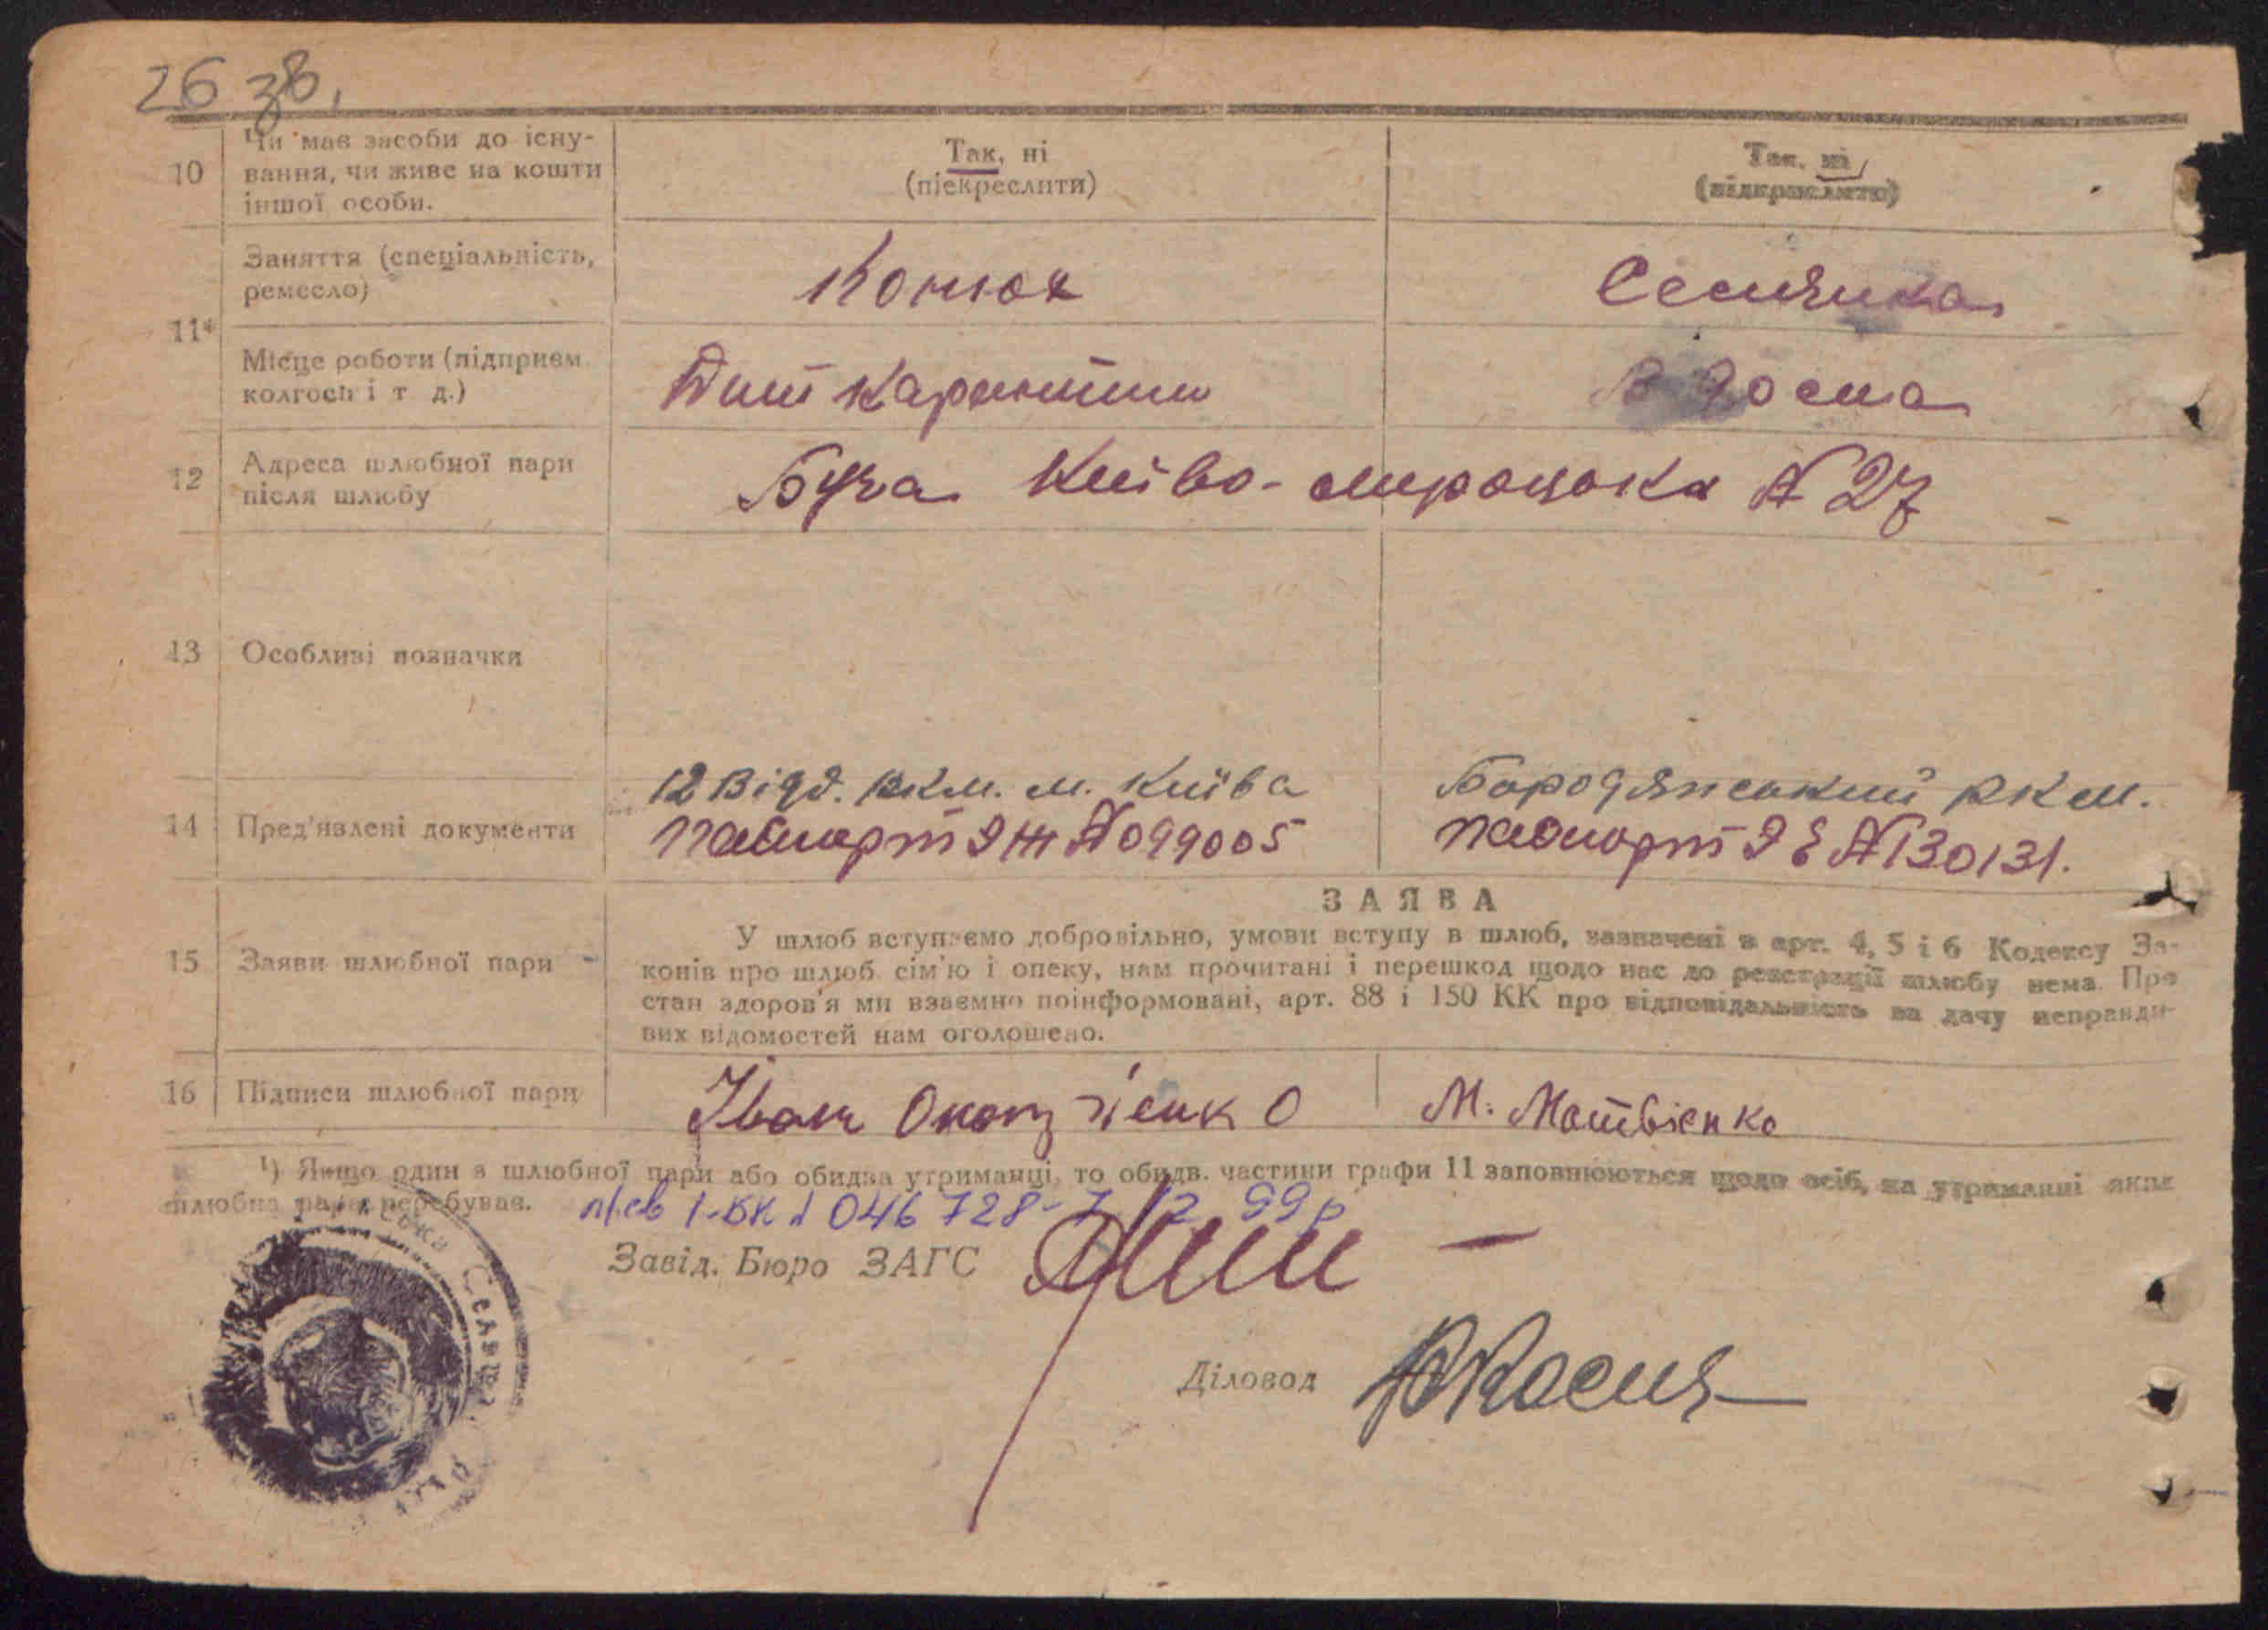 26 зв.
10 Чи має засоби до існу-
вання, чи живе на кошти
іншої особи.
Так, ні
(піекреслити)
Так, ні
(підкреслити)
11*
Заняття (спеціальність,
ремесло)
Конюх
Селянка
Місце роботи (підприєм.
колгосп і т. д.)
Дит карантин
В дома
12 Адреса шлюбної пари
після шлюбу
Буча Київо-мироцька № 27
13 Особливі позначки
14 Пред'явлені документи
12 Відд. РКМ. м. Київа
паспорт ЭЖ № 099005
Бородянський РКМ.
паспорт ЭЕ № 130131.
15 Заяви шлюбної пари
ЗАЯВА
У шлюб вступаємо добровільно, умови вступу в шлюб, зазначені в арт. 4, 5 і 6 Кодексу За-
конів про шлюб, сім'ю і опеку, нам прочитані і перешкод щодо нас до реєстрації шлюбу нема. Про
стан здоров'я ми взаємно поінформовані, арт. 88 і 150 КК про відповідальність за дачу неправди-
вих відомостей нам оголошено.
16 Підписи шлюбної пари
Іван
М. Матвієнко
¹) Якщо один з шлюбної пари або обидва утриманці, то обидв. частини графи 11 заповнюються щодо осіб, на утриманні яких
шлюбна пара перебуває.
п/св I-БК № 046728- 7/12 99р
Завід. Бюро ЗАГС
Діловод